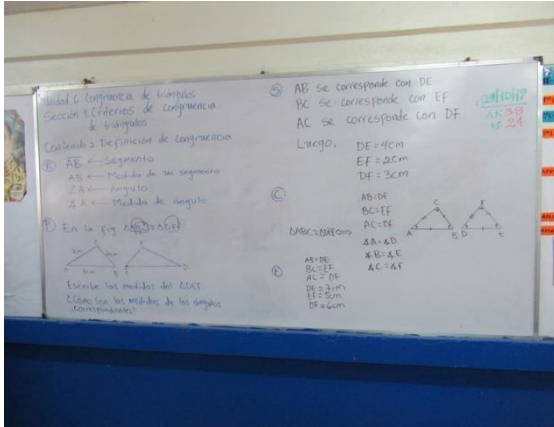 Unidad 6: Congruencia de triángulos
Sección 1: Criterios de congruencia
de triángulos
Contenido 2: Definición de congruencia
AB ← Segmento
AB ← Medida de un segmento
∠A ← Ángulo
∡A ← Medida de ángulo
P En la fig
A B D
Escribe las medidas del ΔDEF
¿Cómo son las medidas de los ángulos
correspondientes?
S AB se corresponde con DE
BC se corresponde con EF
AC se corresponde con DF
Luego, DE = 4cm
EF = 2cm
DF = 3cm
C
AB=DF
BC=EF
AC=DF
ΔABC≅ΔDEF
∡A=∡D
∡B=∡E
∡C=∡F
C
A B D
E
AB=DE
BC=EF
AC=DF
DE=7cm
EF=5cm
DF=6cm
38
24